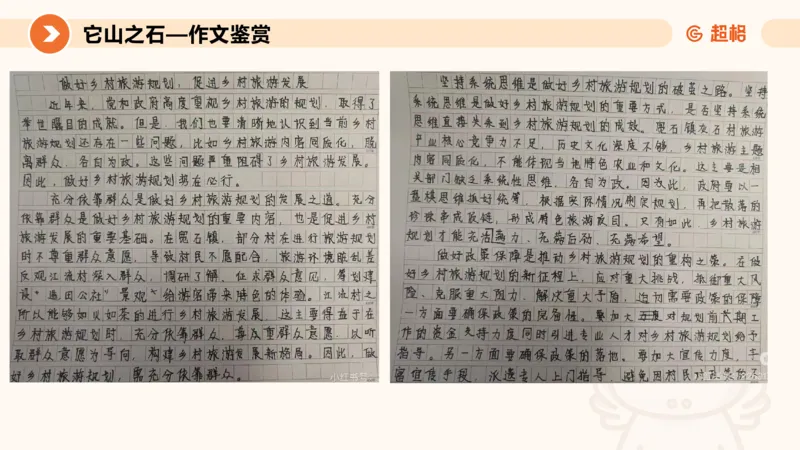 它山之石—作文鉴赏
超格
做好乡村旅游规划，促进乡村旅游发展
近年来，党和政府高度重视乡村旅游的规划，取得了
举世瞩目的成就。但是，我们也要清晰地认识到当前乡村
旅游规划还存在一些问题，比如乡村旅游内容同质化，脱
离群众，各自为政。这些问题严重阻碍了乡村旅游发展。
因此，做好乡村旅游规划势在必行。
充分依靠群众是做好乡村旅游规划的发展之道。充分
依靠群众是做好乡村旅游规划的重要内容，也是促进乡村
旅游发展的重要基础。在宽石镇，部分村在进行旅游规划
时不尊重群众意愿，导致村民不愿配合，旅游环境脏乱差
反观江流村深入群众，调研了解，征求群众意见，筹划建
设“通田公社”景观，给游客带来特色的体验。江流村之
所以能够如火如荼的进行乡村旅游发展，这主要得益于在
乡村旅游规划时，充分依靠群众，尊重群众意愿，以听
取群众意愿为导向，构建乡村旅游发展新格局。因此，做
好乡村旅游规划，需充分依靠群众。
小红书
坚持系统思维是做好乡村旅游规划的破茧之路。坚持
系统思维是做好乡村旅游规划的重要方式，是否坚持系统
思维直接关系到乡村旅游规划的成效。宽石镇农石村旅游
产业核心竞争力不足，历史文化深度不够，乡村旅游主题
内容同质化，不能体现当地特色农业和文化。这主要是相
关部门缺乏系统性思维，各自为政。因为此，政府要以一
盘棋思维谋好统筹，根据实际情况制定规划，再把散落的
珍珠串成项链，形成特色旅游项目。只有如此，乡村旅游
规划才能充活力，充满后劲，充满希望。
做好政策保障是推动乡村旅游规划的重构之策。在做
好乡村旅游规划的新征程上，应对重大挑战，抵御重大风
险，克服重大阻力，解决重大矛盾，迫切需要政策的保障
一方面要确保政策的完备性。要加大对规划前期工
作的资金支持力度同时引进专业人才对乡村旅游规划给予
指导。另一方面要确保政策的落地。要加大宣传力度，丰
富宣传手段，派遣专人上门指导，避免因村民对政策的不